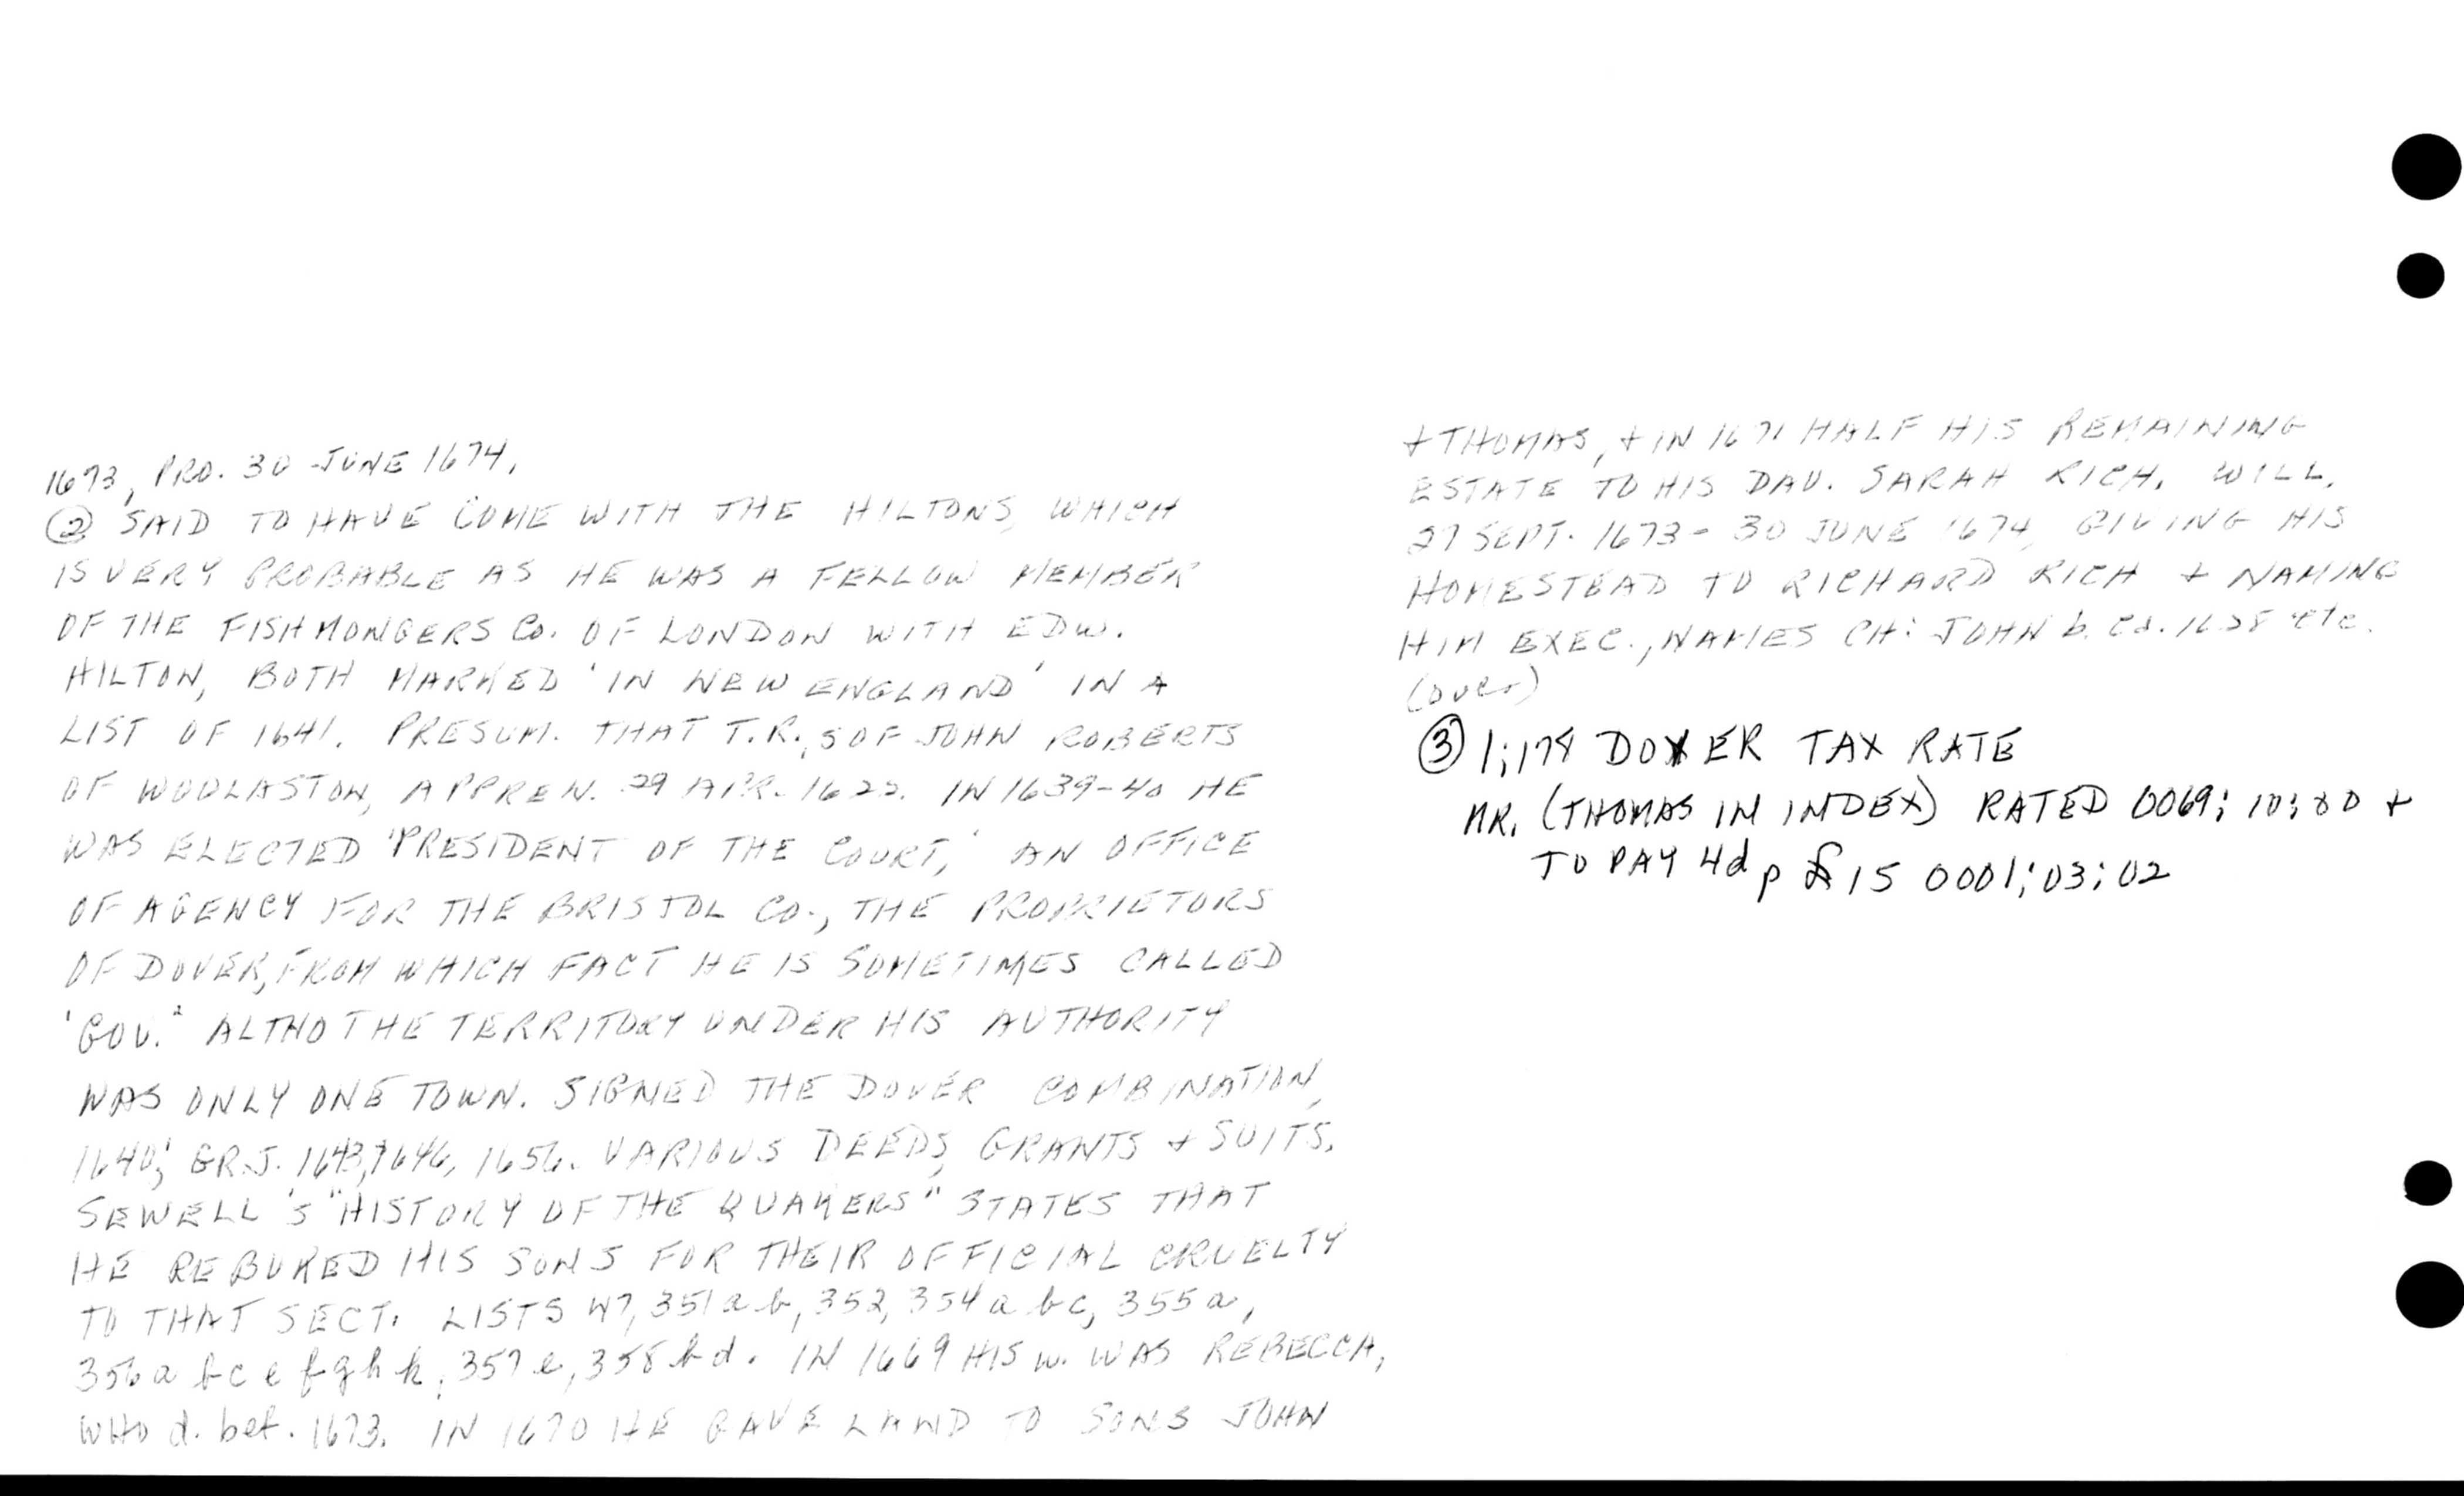 1673, PRO. 30 JUNE 1674.
② SAID TO HAVE COME WITH THE HILTONS, WHICH
IS VERY PROBABLE AS HE WAS A FELLOW MEMBER
OF THE FISHMONGERS CO. OF LONDON WITH EDW.
HILTON, BOTH MARKED 'IN NEW ENGLAND' IN A
LIST OF 1641. PRESUM. THAT T.R., S OF JOHN ROBERTS
OF WOOLASTON, APPREN. 29 APR. 1622. IN 1639-40 HE
WAS ELECTED 'PRESIDENT OF THE COURT,' AN OFFICE
OF AGENCY FOR THE BRISTOL CO., THE PROPRIETORS
OF DOVER, FROM WHICH FACT HE IS SOMETIMES CALLED
'GOV.' ALTHO THE TERRITORY UNDER HIS AUTHORITY
WAS ONLY ONE TOWN. SIGNED THE DOVER COMBINATION,
1640; GR.J. 1643, 1646, 1656. VARIOUS DEEDS, GRANTS + SUITS.
SEWELL'S "HISTORY OF THE QUAKERS" STATES THAT
HE REBUKED HIS SONS FOR THEIR OFFICIAL CRUELTY
TO THAT SECT. LISTS 47, 351 a b, 352, 354 a b c, 355 a,
356 a b c e f g h k, 357 e, 358 b d. IN 1669 HIS W. WAS REBECCA,
WHO d. bef. 1673. IN 1670 HE GAVE LAND TO SONS JOHN
+ THOMAS, + IN 1671 HALF HIS REMAINING
ESTATE TO HIS DAU. SARAH RICH. WILL,
27 SEPT. 1673 - 30 JUNE 1674, GIVING HIS
HOMESTEAD TO RICHARD RICH + NAMING
HIM EXEC., NAMES CH: JOHN b. ca. 1628 etc.
(over)
③ 1;174 DOVER TAX RATE
MR. (THOMAS IN INDEX) RATED 0069; 10; 00 +
TO PAY 4d p £ 15 0001; 03; 02